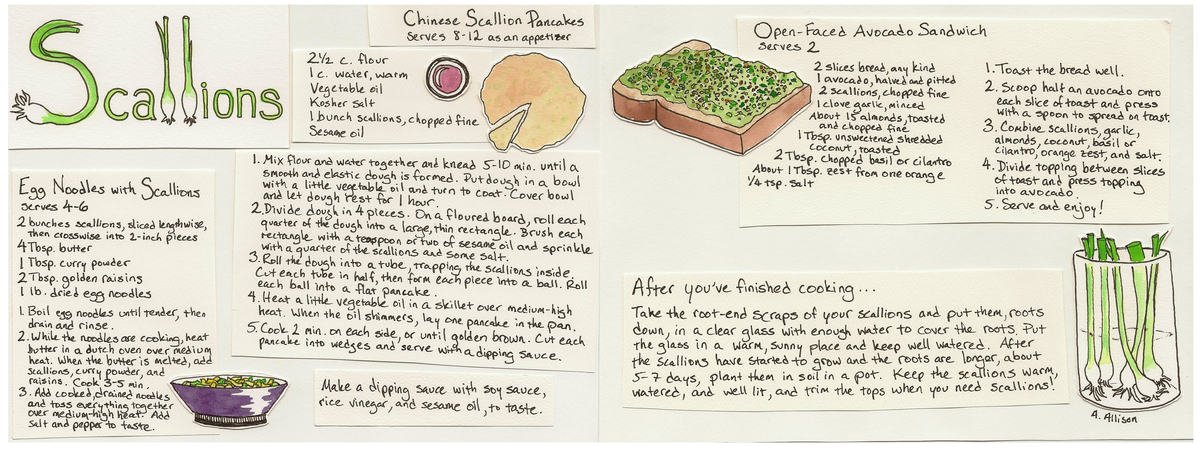 Scallions
Chinese Scallion Pancakes
Serves 8-12 as an appetizer
2 1/2 c. flour
1 c. water, warm
Vegetable oil
Kosher salt
1 bunch scallions, chopped fine
Sesame oil
1. Mix flour and water together and knead 5-10 min. until a
smooth and elastic dough is formed. Put dough in a bowl
with a little vegetable oil and turn to coat. Cover bowl
and let dough rest for 1 hour.
2. Divide dough in 4 pieces. On a floured board, roll each
quarter of the dough into a large, thin rectangle. Brush each
rectangle with a teaspoon or two of sesame oil and sprinkle
with a quarter of the scallions and some salt.
3. Roll the dough into a tube, trapping the scallions inside.
Cut each tube in half, then form each piece into a ball. Roll
each ball into a flat pancake.
4. Heat a little vegetable oil in a skillet over medium-high
heat. When the oil shimmers, lay one pancake in the pan.
5. Cook 2 min. on each side, or until golden brown. Cut each
pancake into wedges and serve with a dipping sauce.
Make a dipping sauce with soy sauce,
rice vinegar, and sesame oil, to taste.
Egg Noodles with Scallions
serves 4-6
2 bunches scallions, sliced lengthwise,
then crosswise into 2-inch pieces
4 Tbsp. butter
1 Tbsp. curry powder
2 Tbsp. golden raisins
1 lb. dried egg noodles
1. Boil egg noodles until tender, then
drain and rinse.
2. While the noodles are cooking, heat
butter in a dutch oven over medium
heat. When the butter is melted, add
scallions, curry powder, and
raisins. Cook 3-5 min.
3. Add cooked, drained noodles
and toss everything together
over medium-high heat. Add
salt and pepper to taste.
Open-Faced Avocado Sandwich
serves 2
2 slices bread, any kind
1 avocado, halved and pitted
2 scallions, chopped fine
1 clove garlic, minced
About 15 almonds, toasted
and chopped fine
1 Tbsp. unsweetened shredded
coconut, toasted
2 Tbsp. chopped basil or cilantro
About 1 Tbsp. zest from one orange
1/4 tsp. salt
1. Toast the bread well.
2. Scoop half an avocado onto
each slice of toast and press
with a spoon to spread on toast.
3. Combine scallions, garlic,
almonds, coconut, basil or
cilantro, orange zest, and salt.
4. Divide topping between slices
of toast and press topping
into avocado.
5. Serve and enjoy!
After you've finished cooking...
Take the root-end scraps of your scallions and put them, roots
down, in a clear glass with enough water to cover the roots. Put
the glass in a warm, sunny place and keep well watered. After
the scallions have started to grow and the roots are longer, about
5-7 days, plant them in soil in a pot. Keep the scallions warm,
watered, and well lit, and trim the tops when you need scallions!
A. Allison